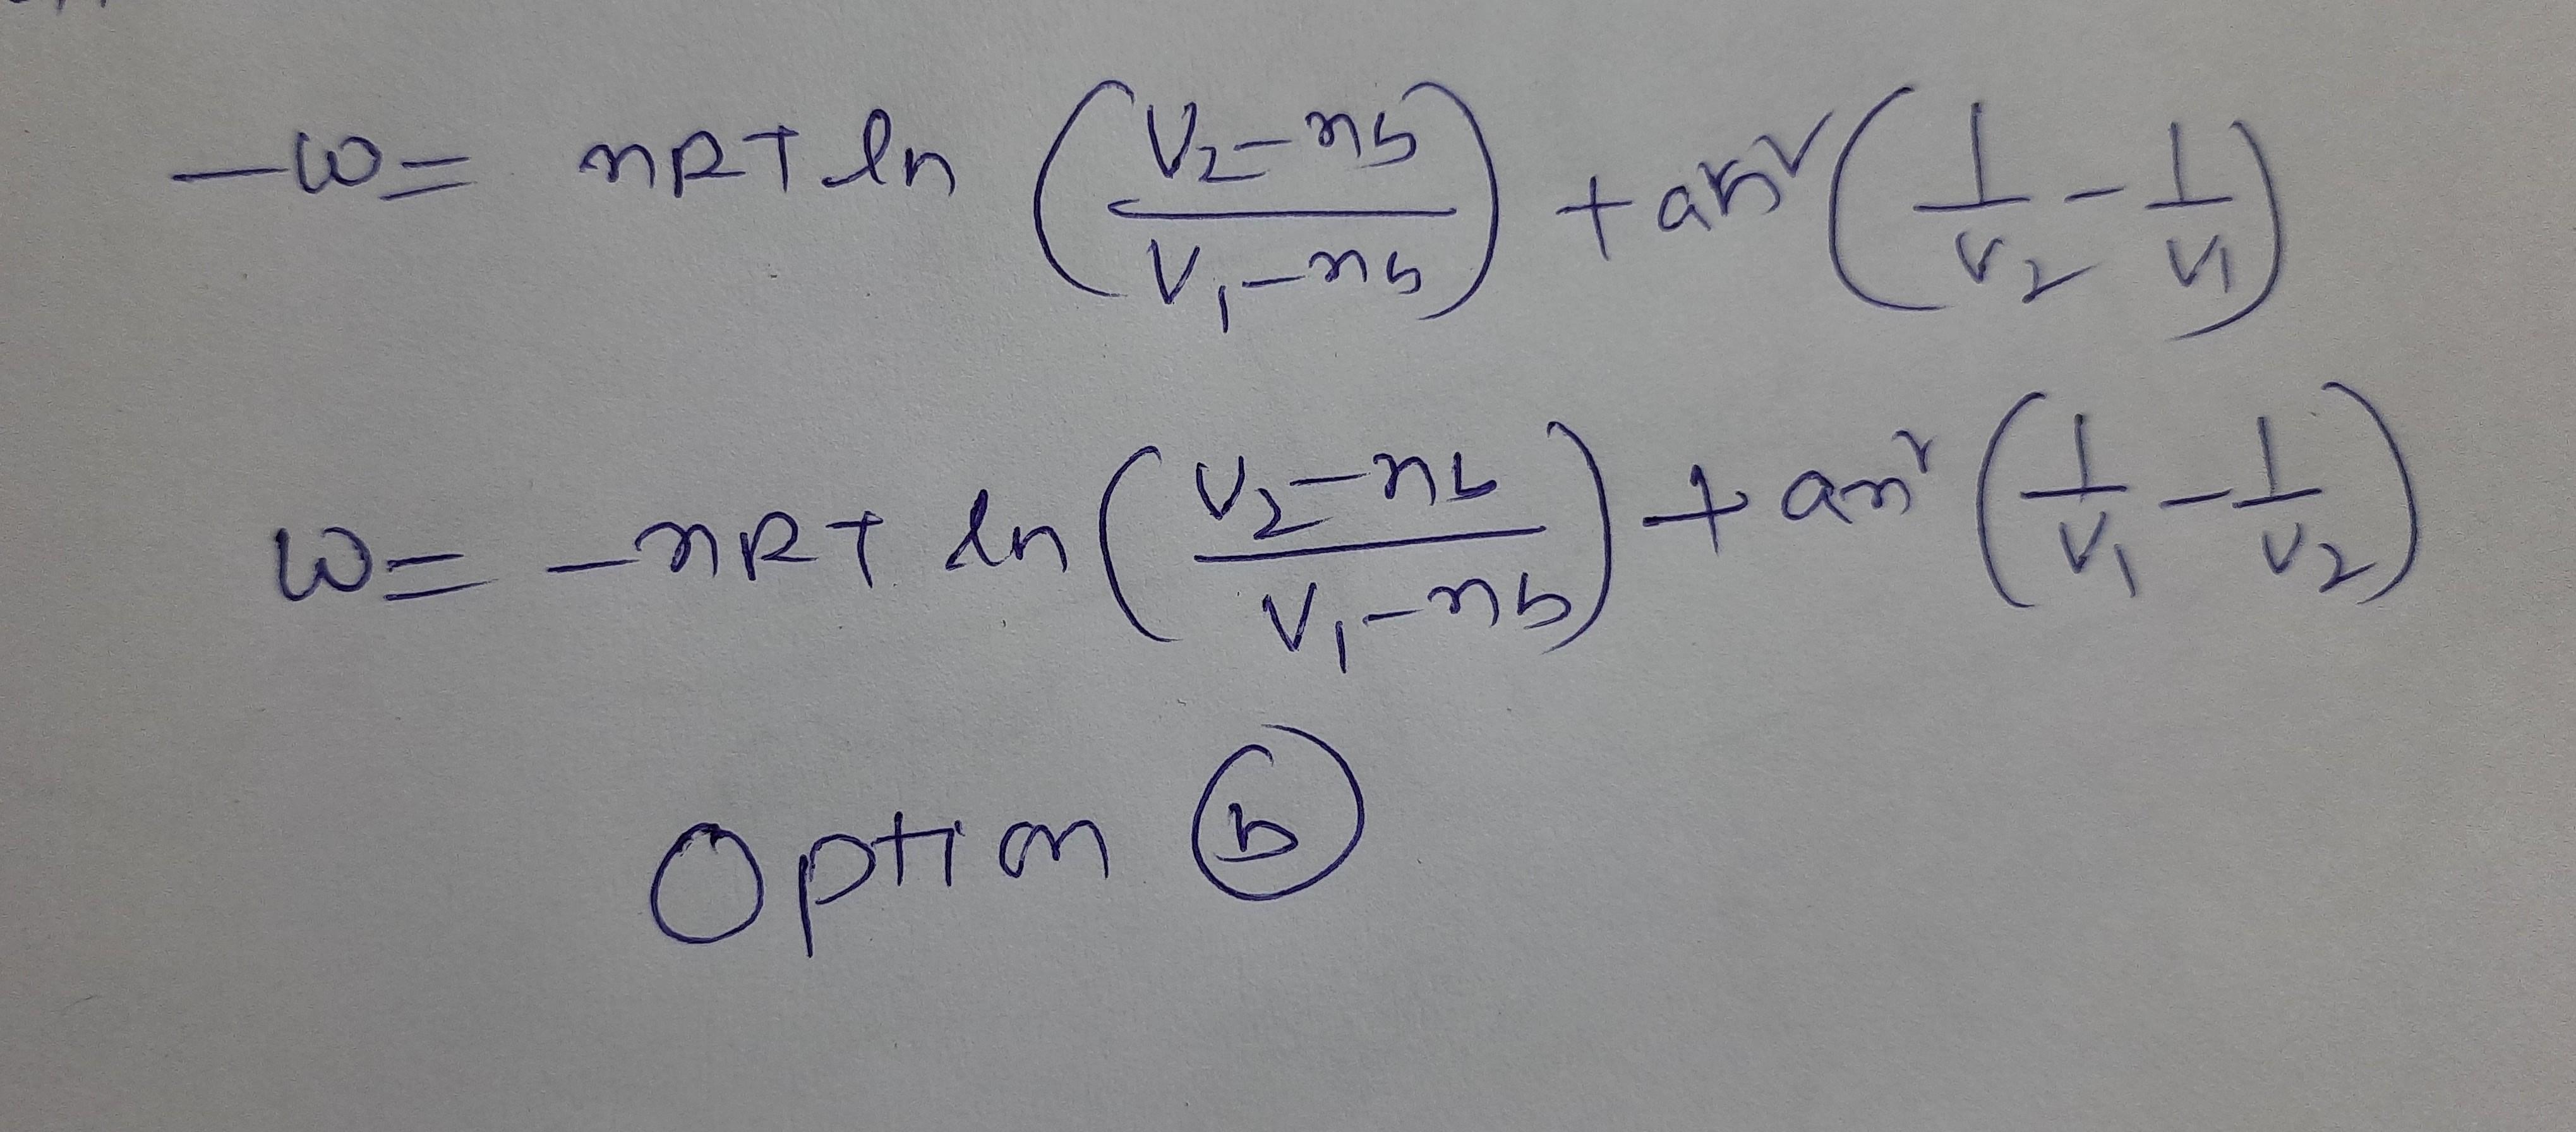 -w = nRT ln ((V₂-nb)/(V₁-nb)) + an² (1/V₂ - 1/V₁)
w = -nRT ln ((V₂-nb)/(V₁-nb)) + an² (1/V₁ - 1/V₂)
Option ⓑ